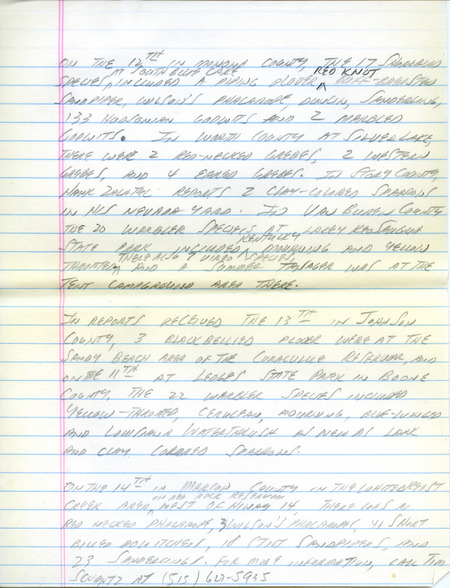 ON THE 12TH IN MONONA COUNTY, THE 17 SHOREBIRD
AT SOUTH BLUE LAKE RED KNOT
SPECIES, INCLUDED A PIPING PLOVER, BUFF-BREASTED
SANDPIPER, WILSON'S PHALAROPE, DUNLIN, SANDERLING,
133 HUDSONIAN GODWITS AND 2 MARBLED
GODWITS. IN WORTH COUNTY AT SILVER LAKE,
THERE WERE 2 RED-NECKED GREBES, 2 WESTERN
GREBES, AND 4 EARED GREBES. IN STORY COUNTY,
HANK ZALETEL REPORTS 2 CLAY-COLORED SPARROWS
IN HIS NEVADA YARD. IN VAN BUREN COUNTY
THE 20 WARBLER SPECIES AT LACEY KEOSAUQUA
KENTUCKY
STATE PARK INCLUDED MOURNING AND YELLOW
THERE ALSO 7 VIREO SPECIES,
THROATED, AND A SUMMER TANAGER WAS AT THE
TENT CAMPGROUND AREA THERE.
IN REPORTS RECEIVED THE 13TH IN JOHNSON
COUNTY, 3 BLACK BELLIED PLOVER WERE AT THE
SANDY BEACH AREA OF THE CORALVILLE RESERVOIR, AND
ON THE 11TH AT LEDGES STATE PARK IN BOONE
COUNTY, THE 22 WARBLER SPECIES INCLUDED
YELLOW-THROATED, CERULEAN, MOURNING, BLUE-WINGED
AND LOUISIANA WATERTHRUSH AS WELL AS LARK
AND CLAY COLORED SPARROWS.
ON THE 14TH IN MARION COUNTY IN THE WHITEBREAST
ON RED ROCK RESERVOIR
CREEK AREA, WEST OF HIWAY 14, THERE WAS A
RED NECKED PHALAROPE, 3 WILSON'S PHALAROPE, 41 SHORT
BILLED DOWITCHERS, 18 STILT SANDPIPERS, AND
23 SANDERLINGS. FOR MORE INFORMATION, CALL TIM
SCHANTZ AT (515)